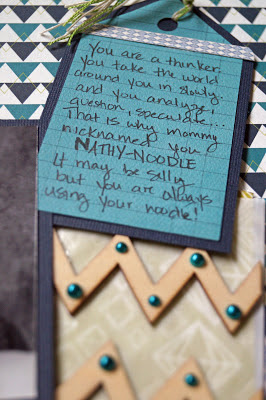 You are a thinker,
you take the world
around you in slowly
and you analyze,
question, speculate...
That is why mommy
nicknamed you
NATHY-NOODLE
It may be silly
but you are always
using your noodle!